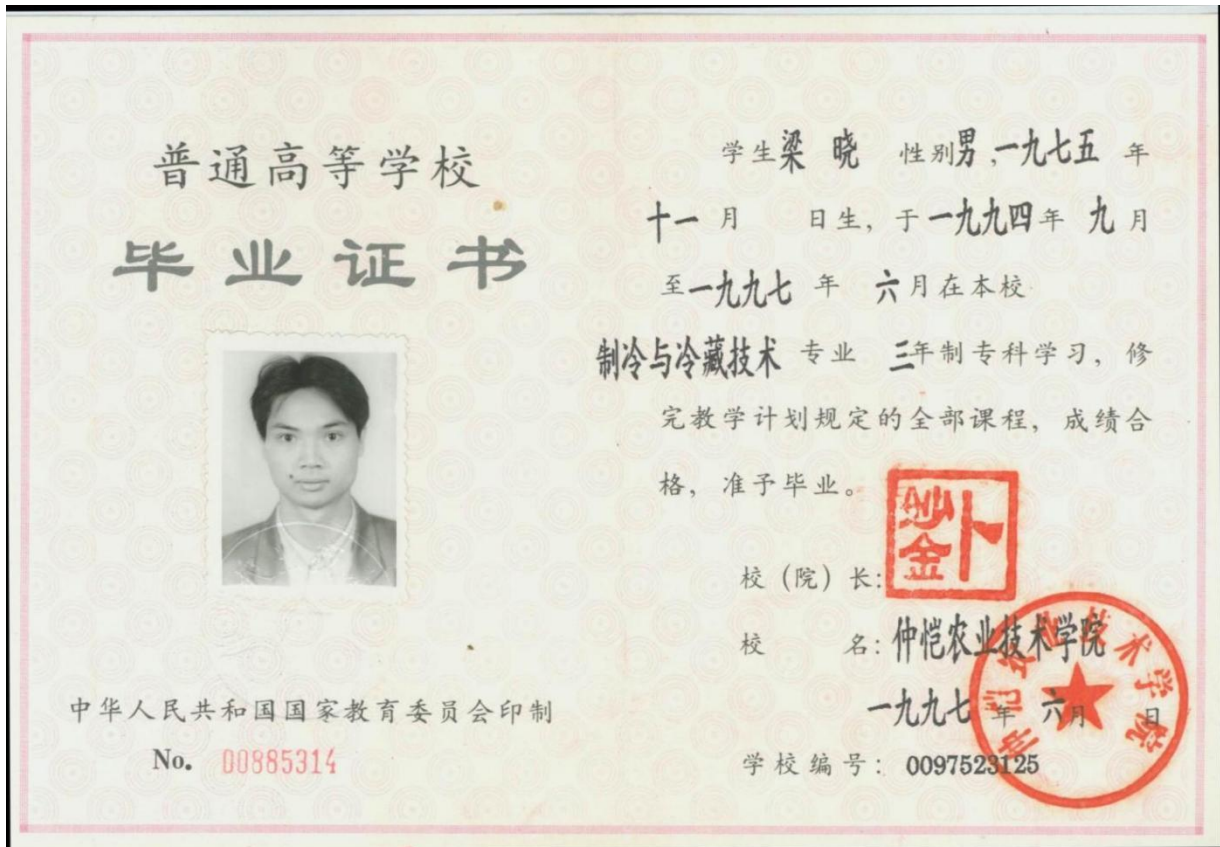 普通高等学校
毕业证书
中华人民共和国国家教育委员会印制
No. 00885314
学生梁 晓 性别男,一九七五 年
十一 月 日生, 于一九九四年 九月
至一九九七 年 六月在本校
制冷与冷藏技术 专业 三年制专科学习, 修
完教学计划规定的全部课程, 成绩合
格, 准予毕业。
校 (院) 长:
校 名: 仲恺农业技术学院
一九九七 年 六月 日
学校编号: 0097523125
仲恺农业技术学院